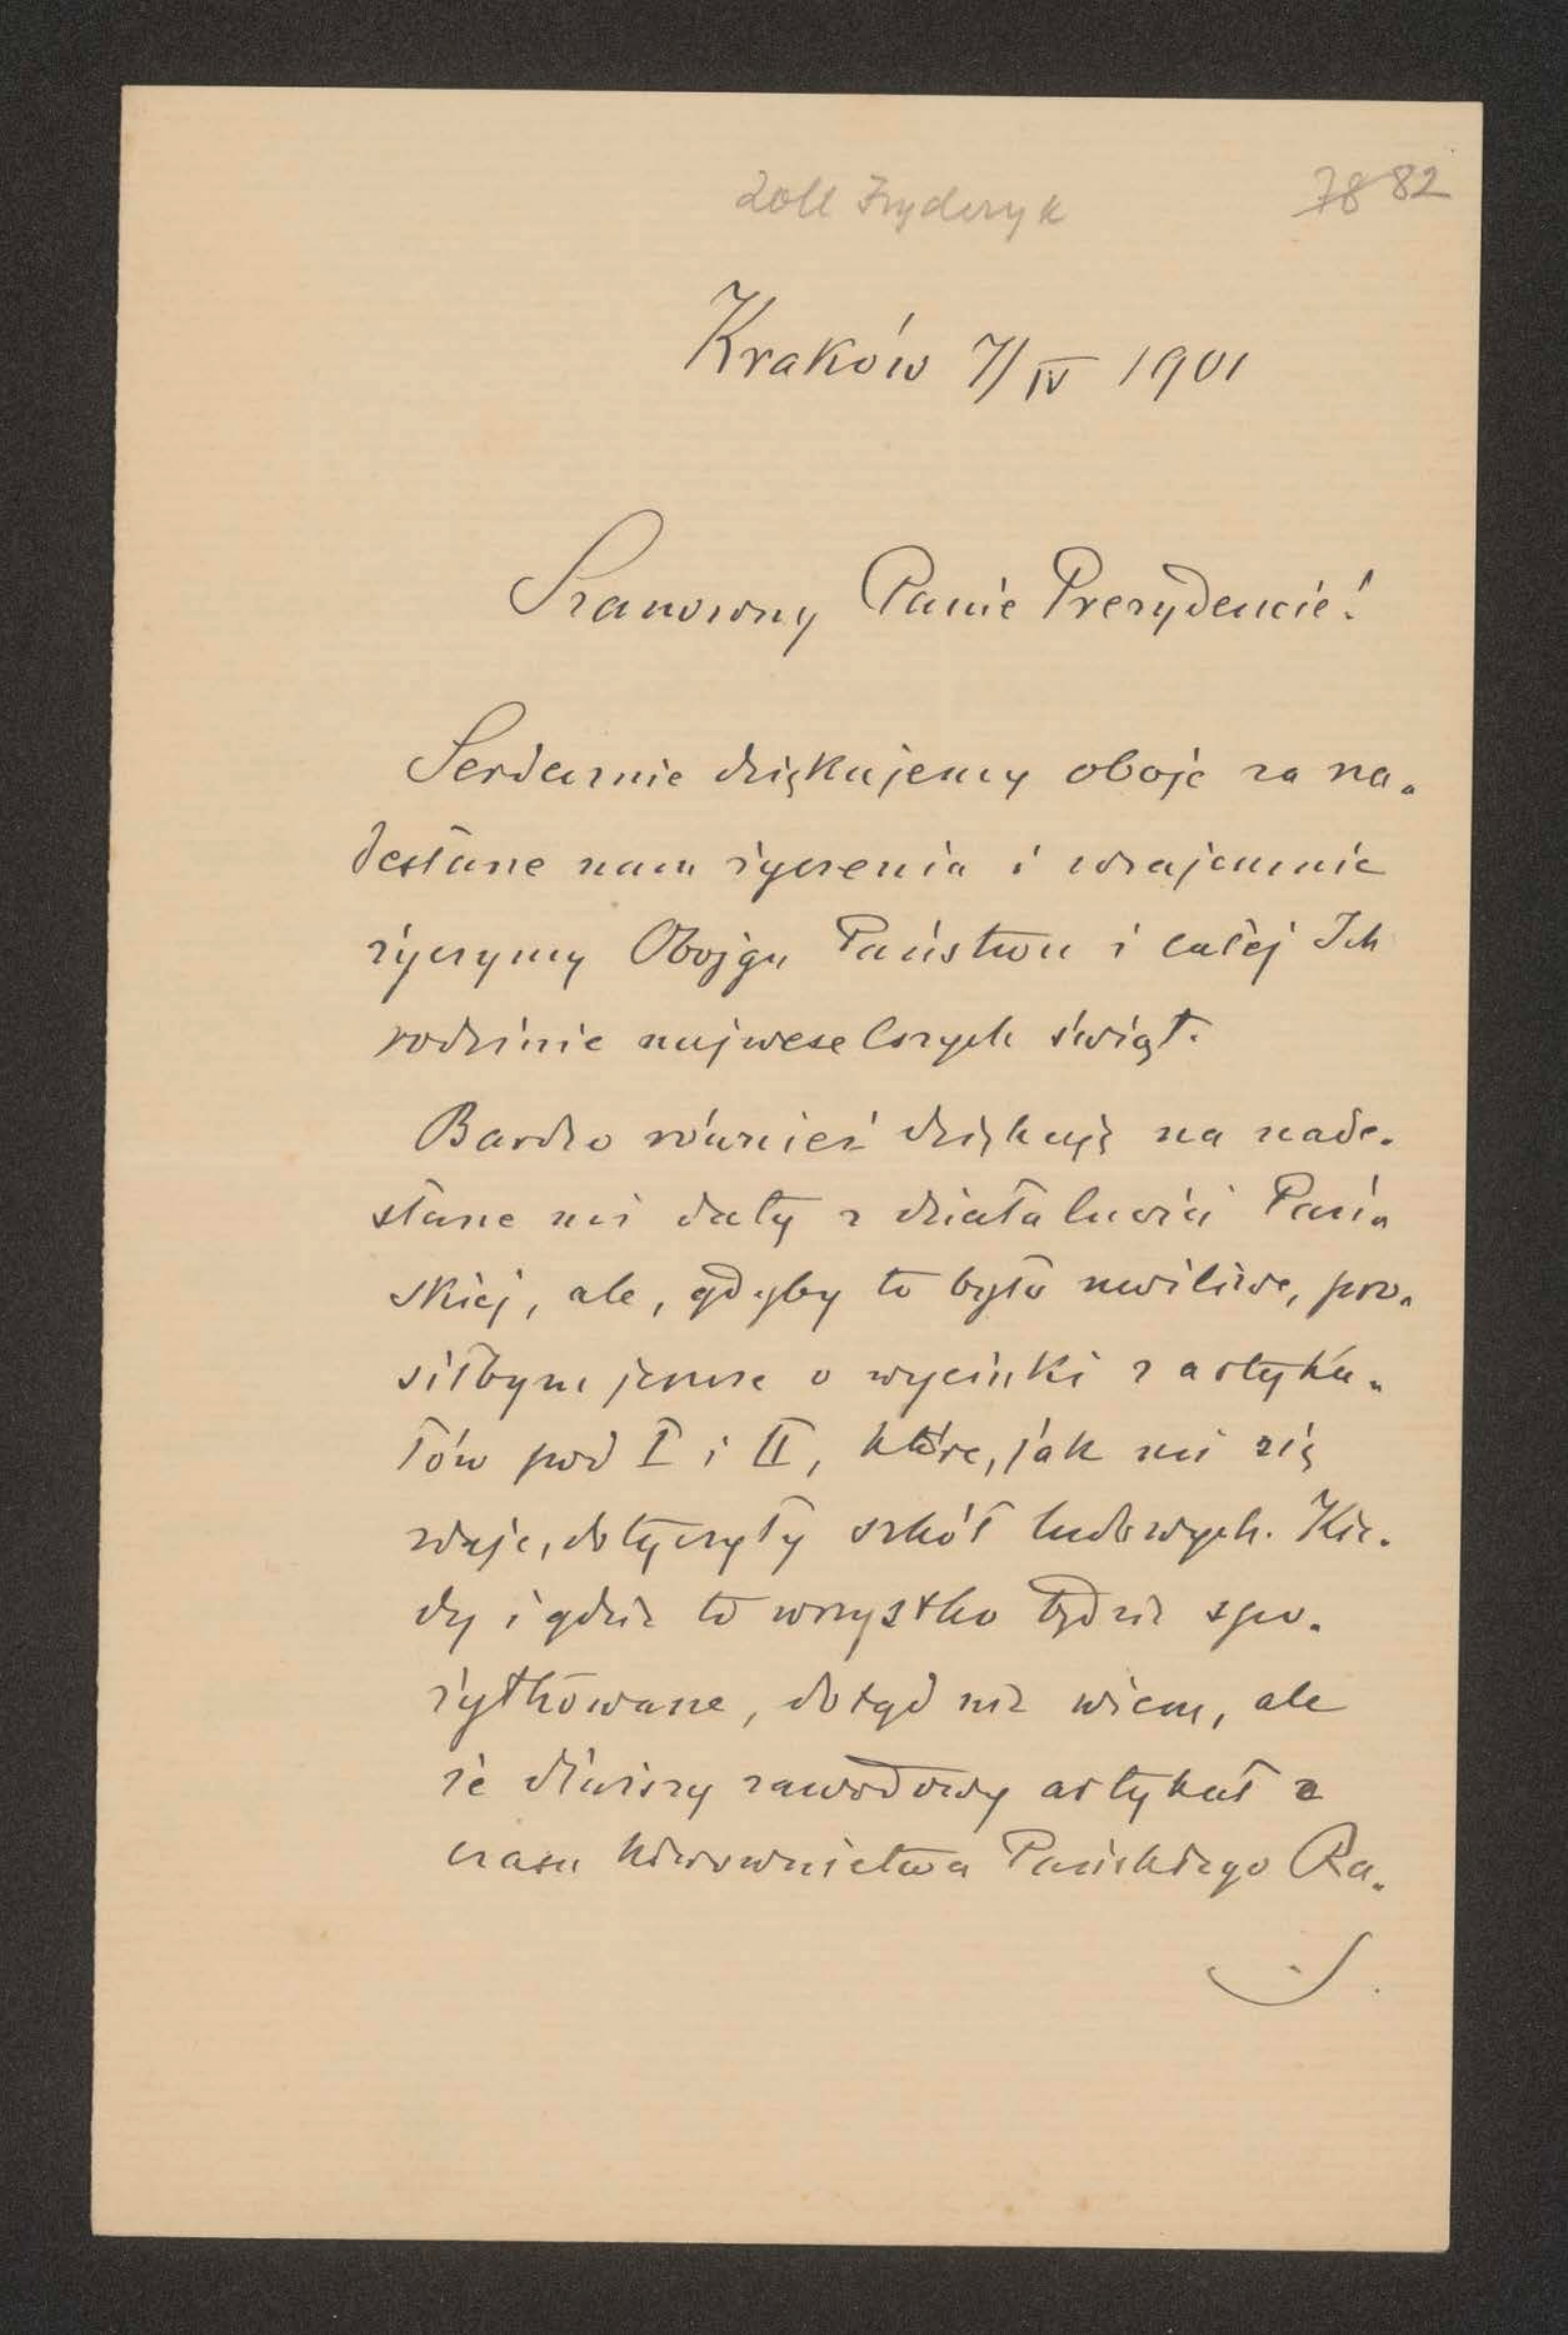 Zoll Fryderyk
78 82
Kraków 7/IV 1901
Szanowny Panie Prezydencie!
Serdecznie dziękujemy oboje za na-
desłane nam życzenia i wzajemnie
życzymy Obojgu Państwu i całej Ich
rodzinie najweselszych świąt.
Bardzo również dziękuję na nade-
słane mi daty z działalności Pań-
skiej, ale, gdyby to było możliwe, pro-
siłbym jeszcze o wycinki z artyku-
łów pod I i II, które, jak mi się
zdaje, dotyczyły szkół ludowych. Kie-
dy i gdzie to wszystko będzie spo-
żytkowane, dotąd nie wiem, ale
że dłuższy zawodowy artykuł z
czasu kierownictwa Pańskiego Ra-